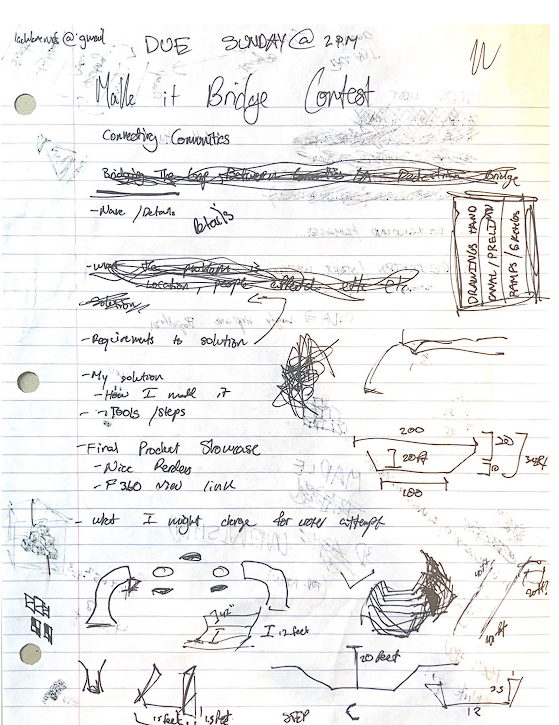 DUE SUNDAY @ 2PM
Make it Bridge Contest
Connecting Communities
Bridging The Gap Between Communities Pedestrian Bridge
- Name / Details
Details
- What the problem is
Location, people affected, etc Etc.
- Solution
- Requirements to solution
- My solution
- How I made it
- Tools / steps
- Final Product Showcase
- Nice Renders
- F360 view link
- What I might change for attempt
DRAWINGS HAND
RAMPS /
200
20ft
100
20
10
42"
12 feet
20 feet
15 feet
1.5 feet
STEP
10ft
10ft
20ft
2.5
12